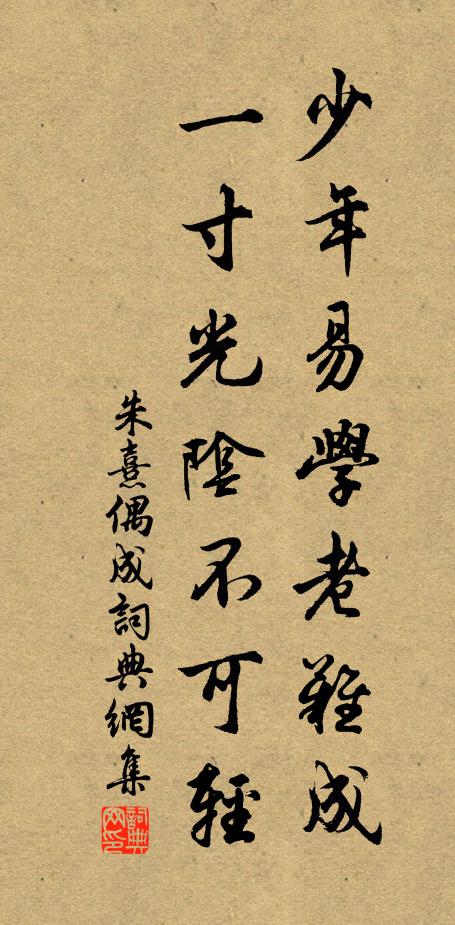 少年易學老難成
一寸光陰不可輕
朱熹偶成詞典網集
詞典网印